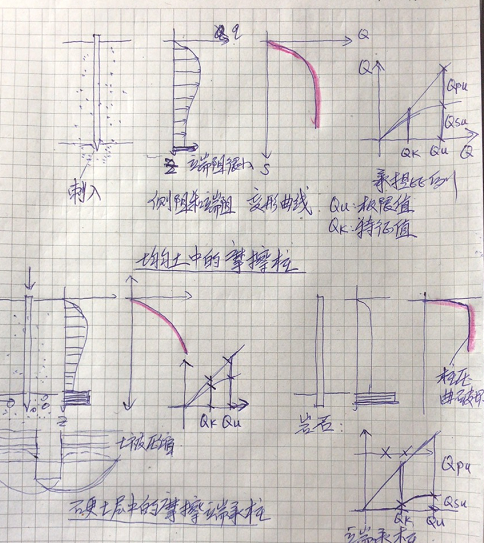 q
Q
Q
Qpu
Qsu
Qk Qu Q
z 端阻很小
s
刺入
侧阻和端阻 变形曲线
承担比例
Qu:极限值
Qk:特征值
均匀土中的摩擦桩
z
Qk Qu
土被压密
岩石:
桩压曲破坏
Qpu
Qsu
Qk Qu
硬土层中的摩擦端承桩
端承桩